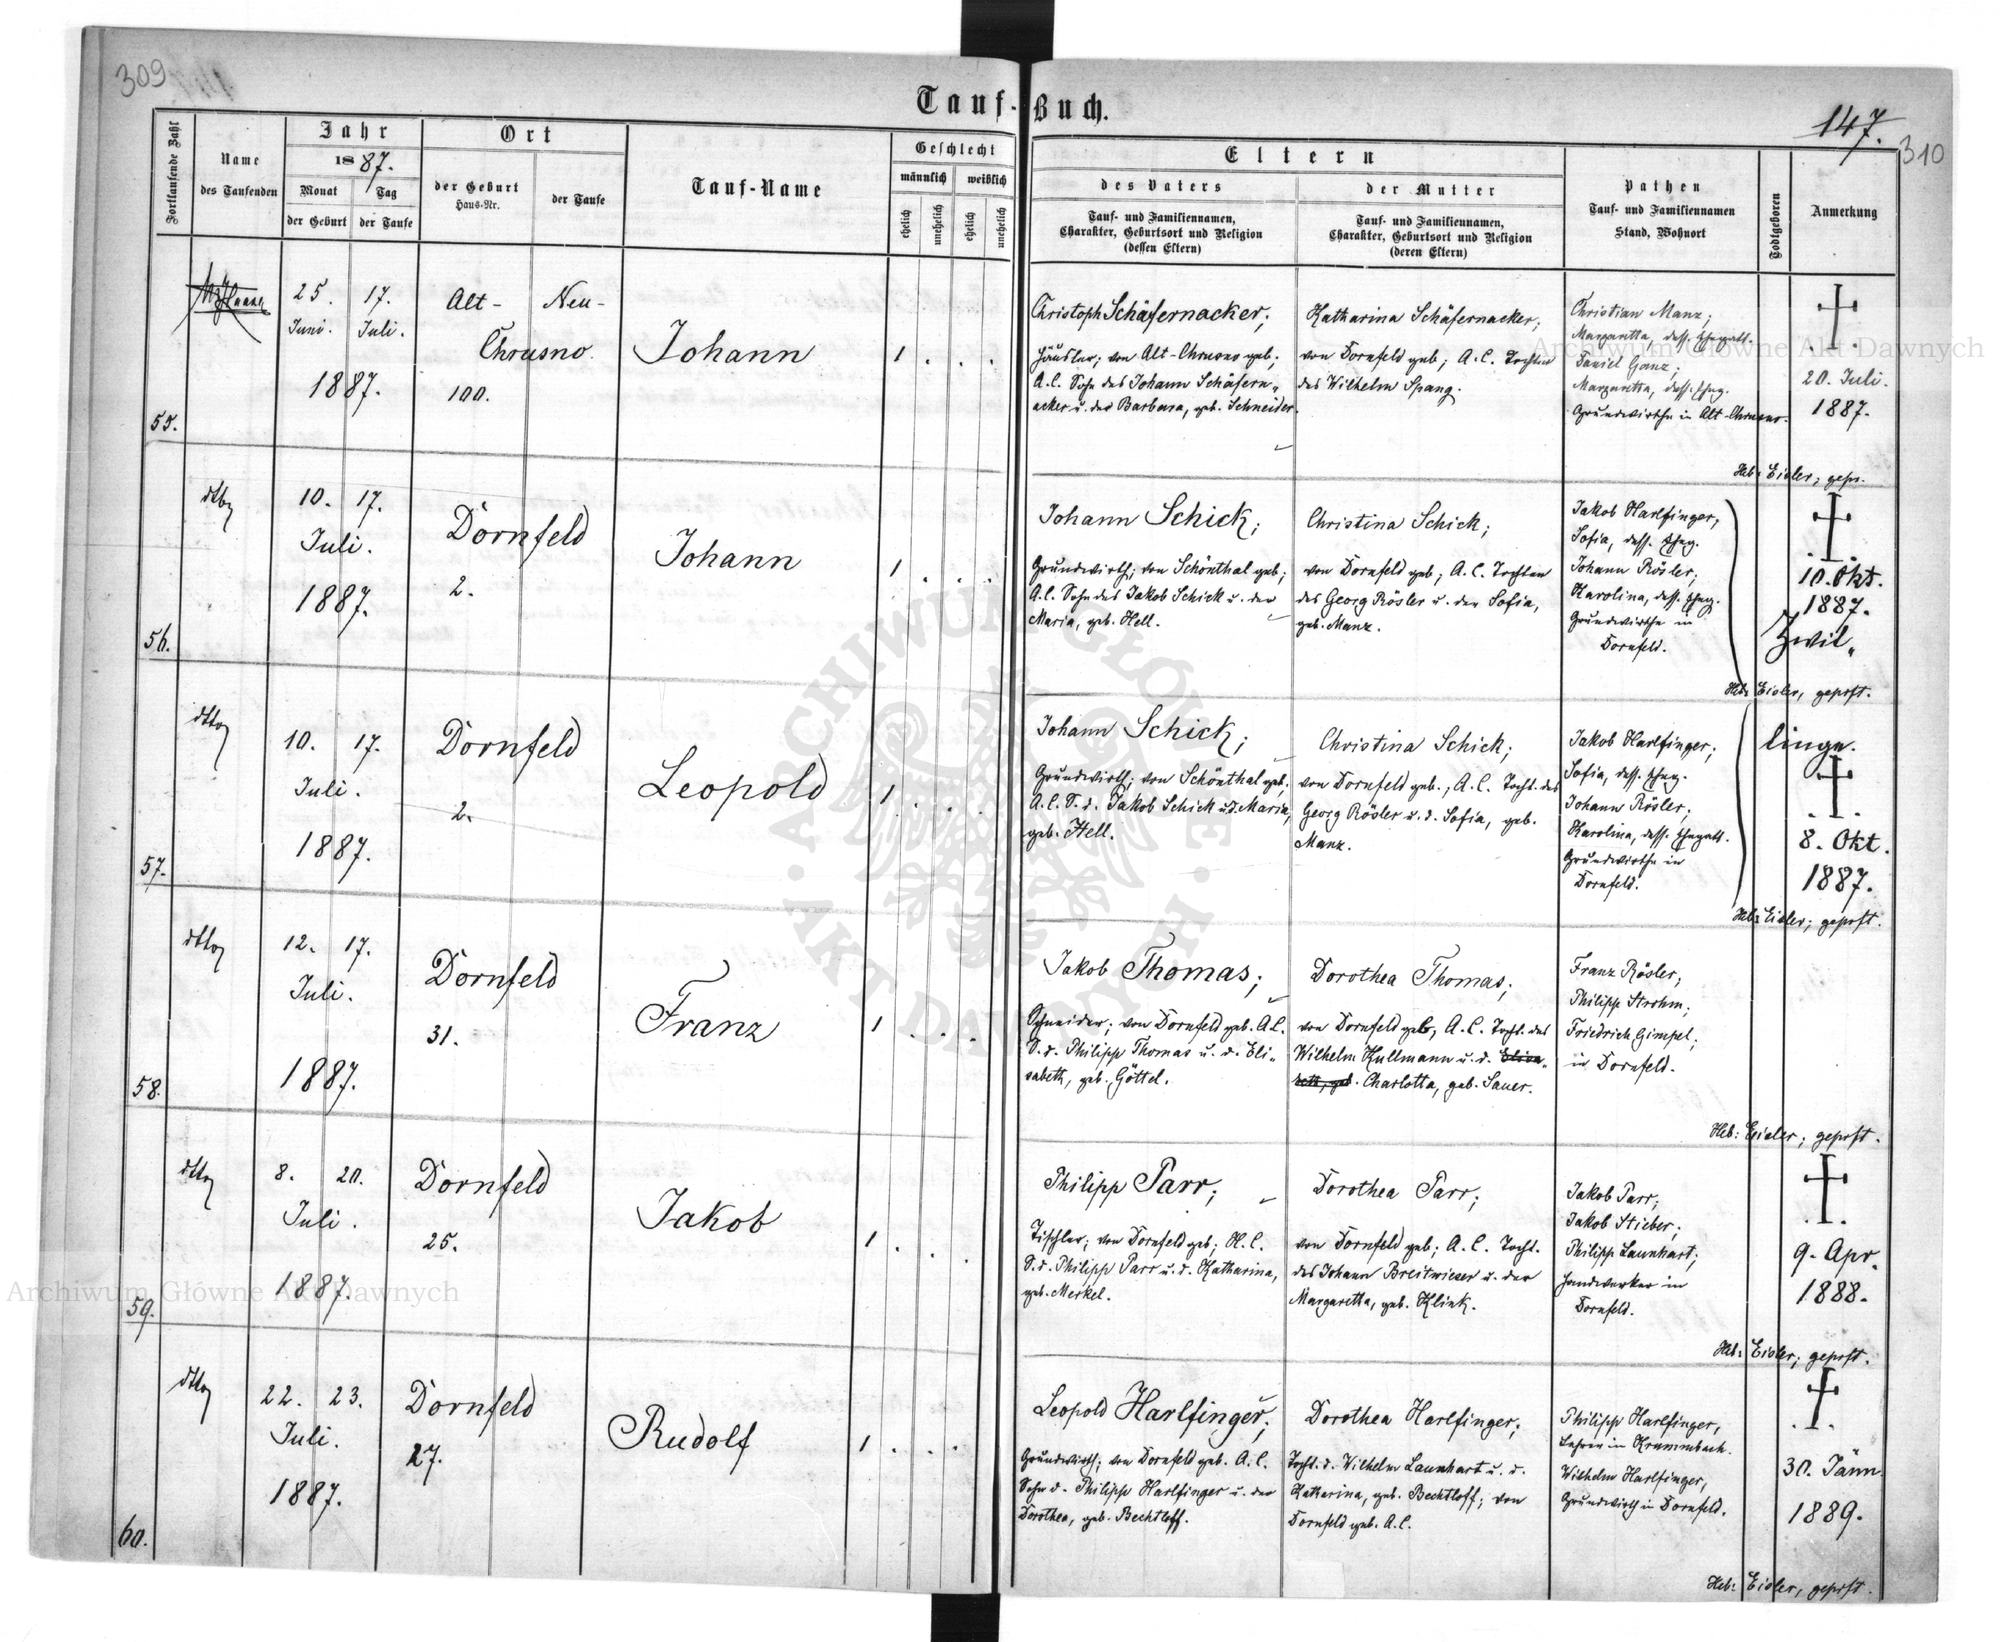 309
Tauf-Buch.
147.
310
Fortlaufende Zahl
Name
des Taufenden
Jahr
1887.
Monat
Tag
der Geburt
der Taufe
Ort
der Geburt
Haus-Nr.
der Taufe
Tauf-Name
Geschlecht
männlich
weiblich
ehelich
unehelich
ehelich
unehelich
Eltern
des Vaters
Tauf- und Familiennamen,
Charakter, Geburtsort und Religion
(dessen Eltern)
der Mutter
Tauf- und Familiennamen,
Charakter, Geburtsort und Religion
(deren Eltern)
Pathen
Tauf- und Familiennamen
Stand, Wohnort
Todtgeboren
Anmerkung
55.
25. 17.
Juni. Juli.
1887.
Alt- Neu-
Chrusno.
100.
Johann
1 . . .
Christoph Schäfernacker;
Häusler; von Alt-Chrusno geb;
A.C. Sohn des Johann Schäfern„
acker u. der Barbara, geb. Schneider.
Katharina Schäfernacker;
von Dornfeld geb; A.C. Tochter
des Wilhelm Spang.
Christian Manz;
Margaretta, dess. Ehegatt.
Daniel Ganz;
Margaretta, dess. Eheg.
Grundwirthe in Alt-Chrusno.
20. Juli.
1887.
Heb: Eisler; gepr.
56.
dtto
10. 17.
Juli.
1887.
Dornfeld
2.
Johann
1 . . .
Johann Schick;
Grundwirth; von Schönthal geb;
A.C. Sohn des Jakob Schick u. der
Maria, geb. Hell.
Christina Schick;
von Dornfeld geb; A.C. Tochter
des Georg Rösler u. der Sofia,
geb. Manz.
Jakob Harlfinger,
Sofia, dess. Eheg.
Johann Rösler;
Karolina, dess. Eheg.
Grundwirthe in
Dornfeld.
10. Okt.
1887.
Zwil„
Heb: Eisler, geprft.
57.
dtto
10. 17.
Juli.
1887.
Dornfeld
2.
Leopold
1 . . .
Johann Schick;
Grundwirth; von Schönthal geb;
A.C. S. d. Jakob Schick u. d. Maria,
geb. Hell.
Christina Schick;
von Dornfeld geb., A.C. Tocht. des
Georg Rösler u. d. Sofia, geb.
Manz.
Jakob Harlfinger;
Sofia, dess. Eheg.
Johann Rösler;
Karolina, dess. Ehegatt.
Grundwirthe in
Dornfeld.
linge.
8. Okt.
1887.
Heb: Eisler; geprft.
58.
dtto
12. 17.
Juli.
1887.
Dornfeld
31.
Franz
1 . . .
Jakob Thomas;
Schneider; von Dornfeld geb. A.C.
S. d. Philipp Thomas u. d. Eli-
sabeth, geb. Göttel.
Dorothea Thomas;
von Dornfeld geb, A.C. Tocht. des
Wilhelm Kullmann u. d. Elisa„
beth, geb. Charlotta, geb. Sauer.
Franz Rösler;
Philipp Strohm;
Friedrich Gimpel;
in Dornfeld.
Heb: Eisler; geprft.
59.
dtto
8. 20.
Juli.
1887.
Dornfeld
25.
Jakob
1 . . .
Philipp Parr;
Tischler; von Dornfeld geb; H.C.
S. d. Philipp Parr u. d. Katharina,
geb. Merkel.
Dorothea Parr;
von Dornfeld geb; A.C. Tocht.
des Johann Breitwieser u. der
Margaretta, geb. Klink.
Jakob Parr;
Jakob Stieber;
Philipp Launhart;
Handwerker in
Dornfeld.
9. Apr.
1888.
Heb: Eisler; geprft.
60.
dtto
22. 23.
Juli.
1887.
Dornfeld
27.
Rudolf
1 . . .
Leopold Harlfinger;
Grundwirth; von Dornfeld geb. A.C.
Sohn d. Philipp Harlfinger u. der
Dorothea, geb. Bechtloff.
Dorothea Harlfinger;
Tocht. d. Wilhelm Launhart u. d.
Katharina, geb. Bechtloff; von
Dornfeld geb. A.C.
Philipp Harlfinger,
Lehrer in Krummbach.
Wilhelm Harlfinger,
Grundwirth in Dornfeld.
30. Jänn.
1889.
Heb: Eisler, geprft.
Archiwum Główne Akt Dawnych
ARCHIWUM GŁÓWNE · AKT DAWNYCH ·
Archiwum Główne Akt Dawnych